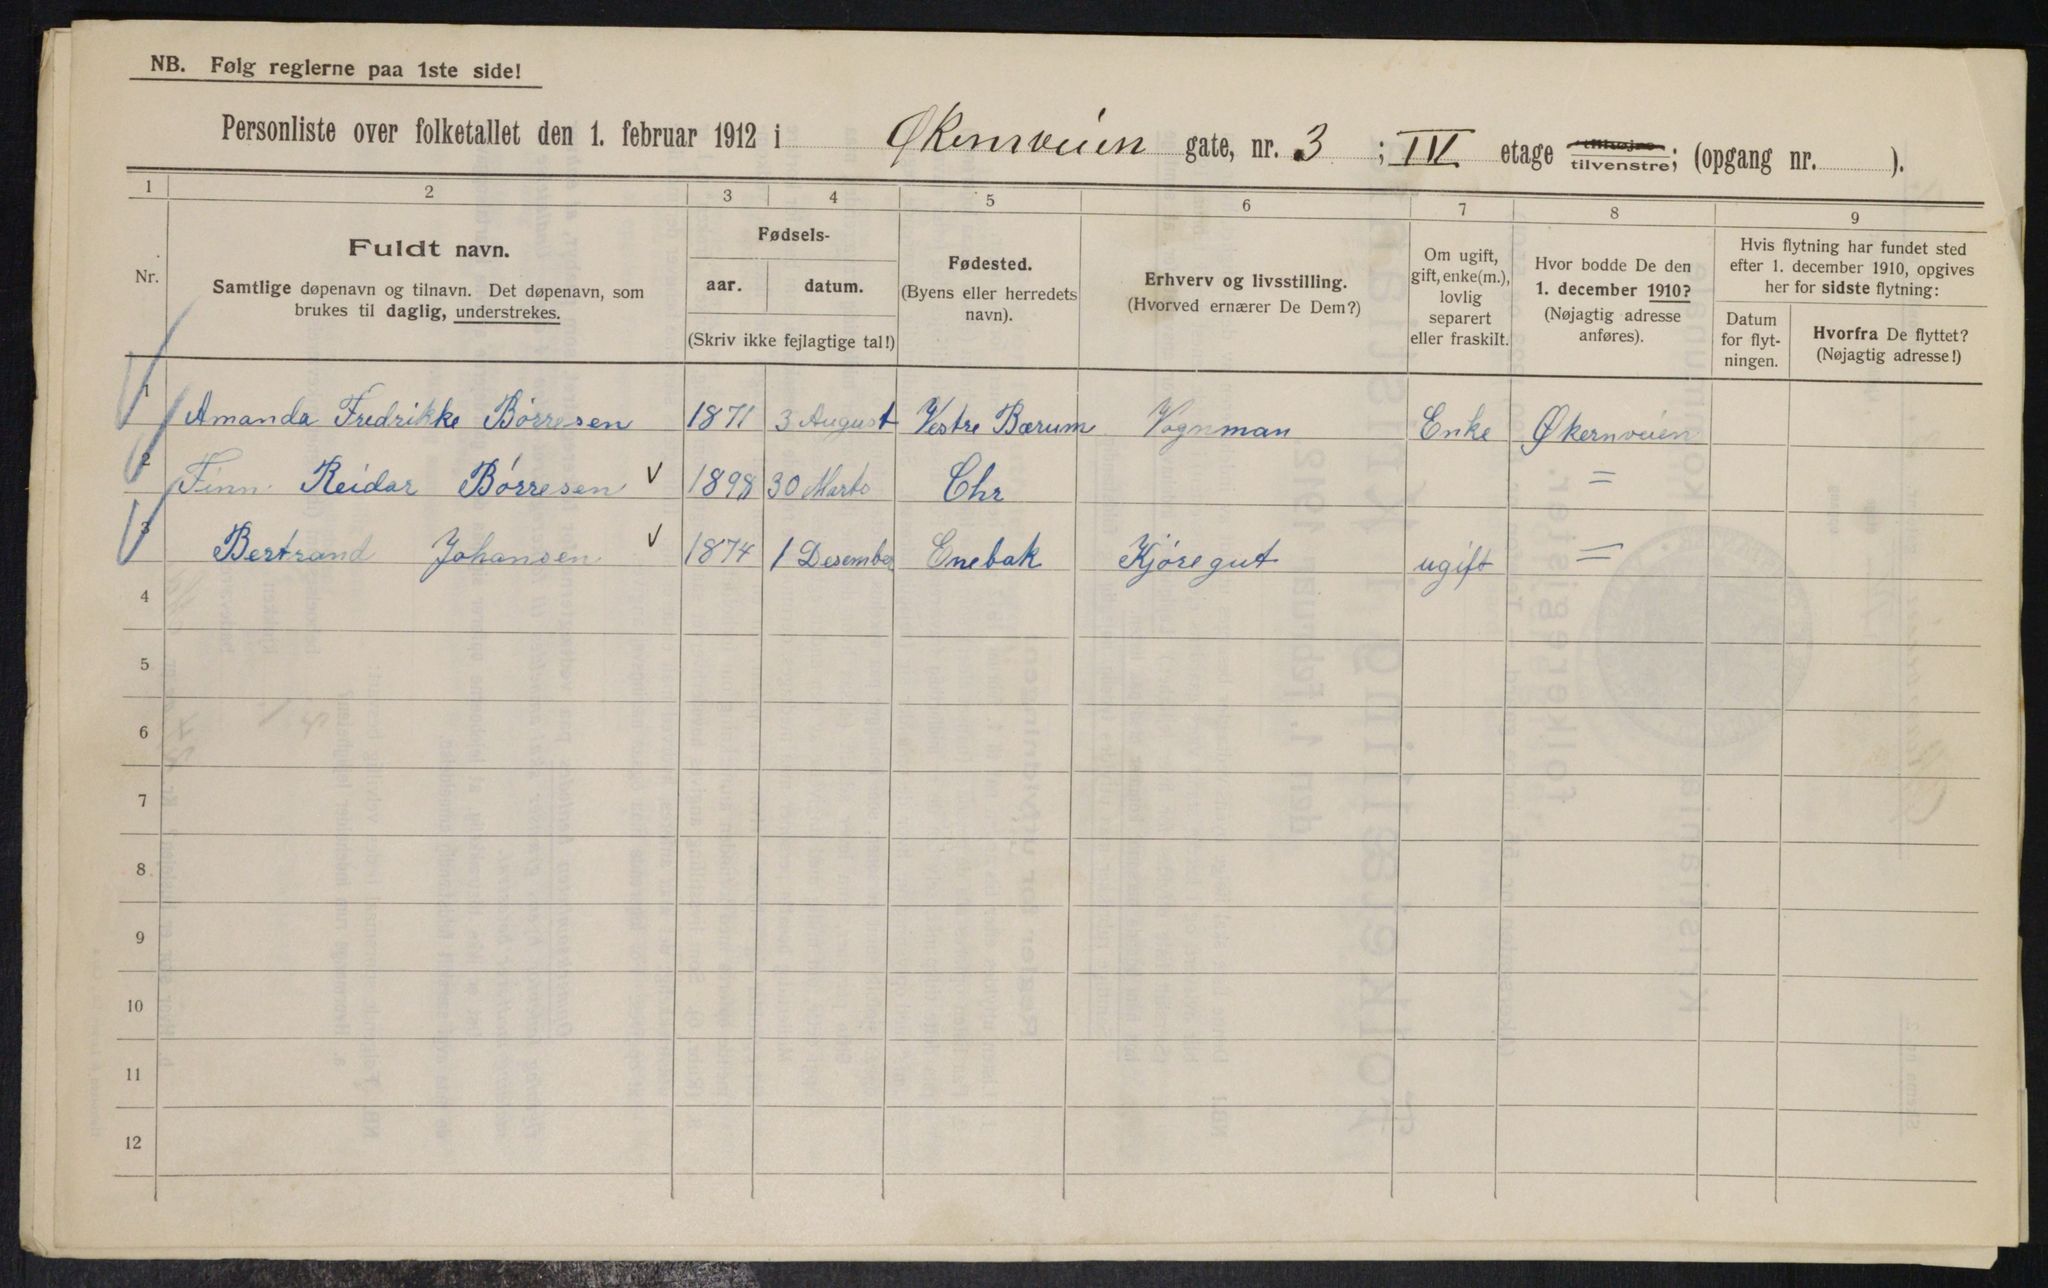 NB. Følg reglerne paa 1ste side!
Personliste over folketallet den 1. februar 1912 i Økernveien gate, nr. 3 ; IV etage tilhøjre tilvenstre; (opgang nr. ).
1 2 3 4 5 6 7 8 9
Nr.
Fuldt navn.
Samtlige døpenavn og tilnavn. Det døpenavn, som
brukes til daglig, understrekes.
Fødsels-
aar. datum.
(Skriv ikke fejlagtige tal!)
Fødested.
(Byens eller herredets
navn).
Erhverv og livsstilling.
(Hvorved ernærer De Dem?)
Om ugift,
gift, enke(m.),
lovlig
separert
eller fraskilt.
Hvor bodde De den
1. december 1910?
(Nøjagtig adresse
anføres).
Hvis flytning har fundet sted
efter 1. december 1910, opgives
her for sidste flytning:
Datum
for flyt-
ningen.
Hvorfra De flyttet?
(Nøjagtig adresse!)
1 Amanda Fredrikke Börresen 1871 3 August Vestre Bærum Vognman Enke Økernveien
2 Finn Reidar Börresen V 1898 30 Marts Chr =
3 Bertrand Johansen V 1874 1 Desember Enebak Kjöregut ugift =
4
5
6
7
8
9
10
11
12